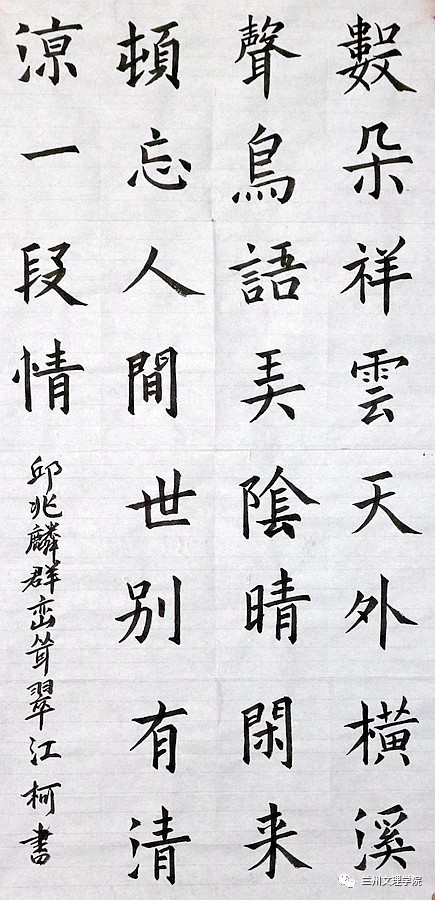 數朵祥雲天外橫溪
聲鳥語弄陰晴閑来
頓忘人間世别有清
涼一段情
邱兆麟群峦耸翠江柯書
兰州文理学院